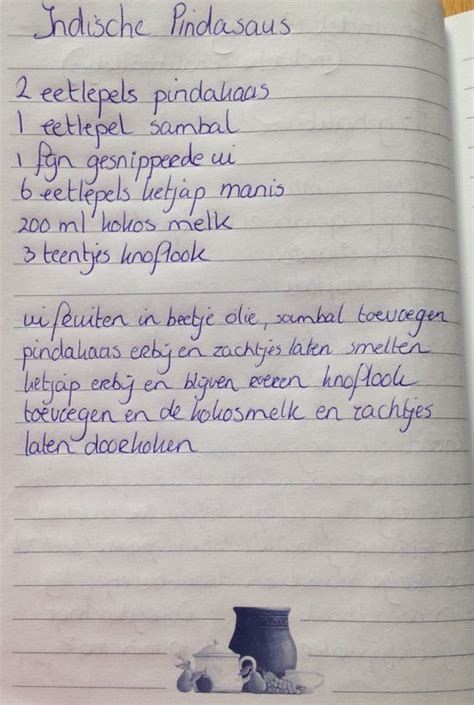 Indische Pindasaus
2 eetlepels pindakaas
1 eetlepel sambal
1 fijn gesnippeede ui
6 eetlepels ketjap manis
200 ml kokos melk
3 teentjes knoflook
ui fruiten in beetje olie, sambal toevoegen
pindakaas erbij en zachtjes laten smelten
ketjap erbij en blijven roeren knoflook
toevoegen en de kokosmelk en zachtjes
laten doorkoken